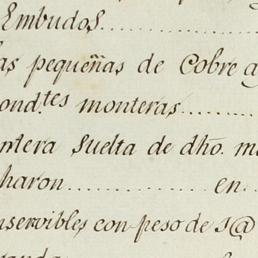 Embudos
as pequeñas de Cobre a
ond.tes monteras
ntera Suelta de dho. m
charon en
nservibles con peso de 5@